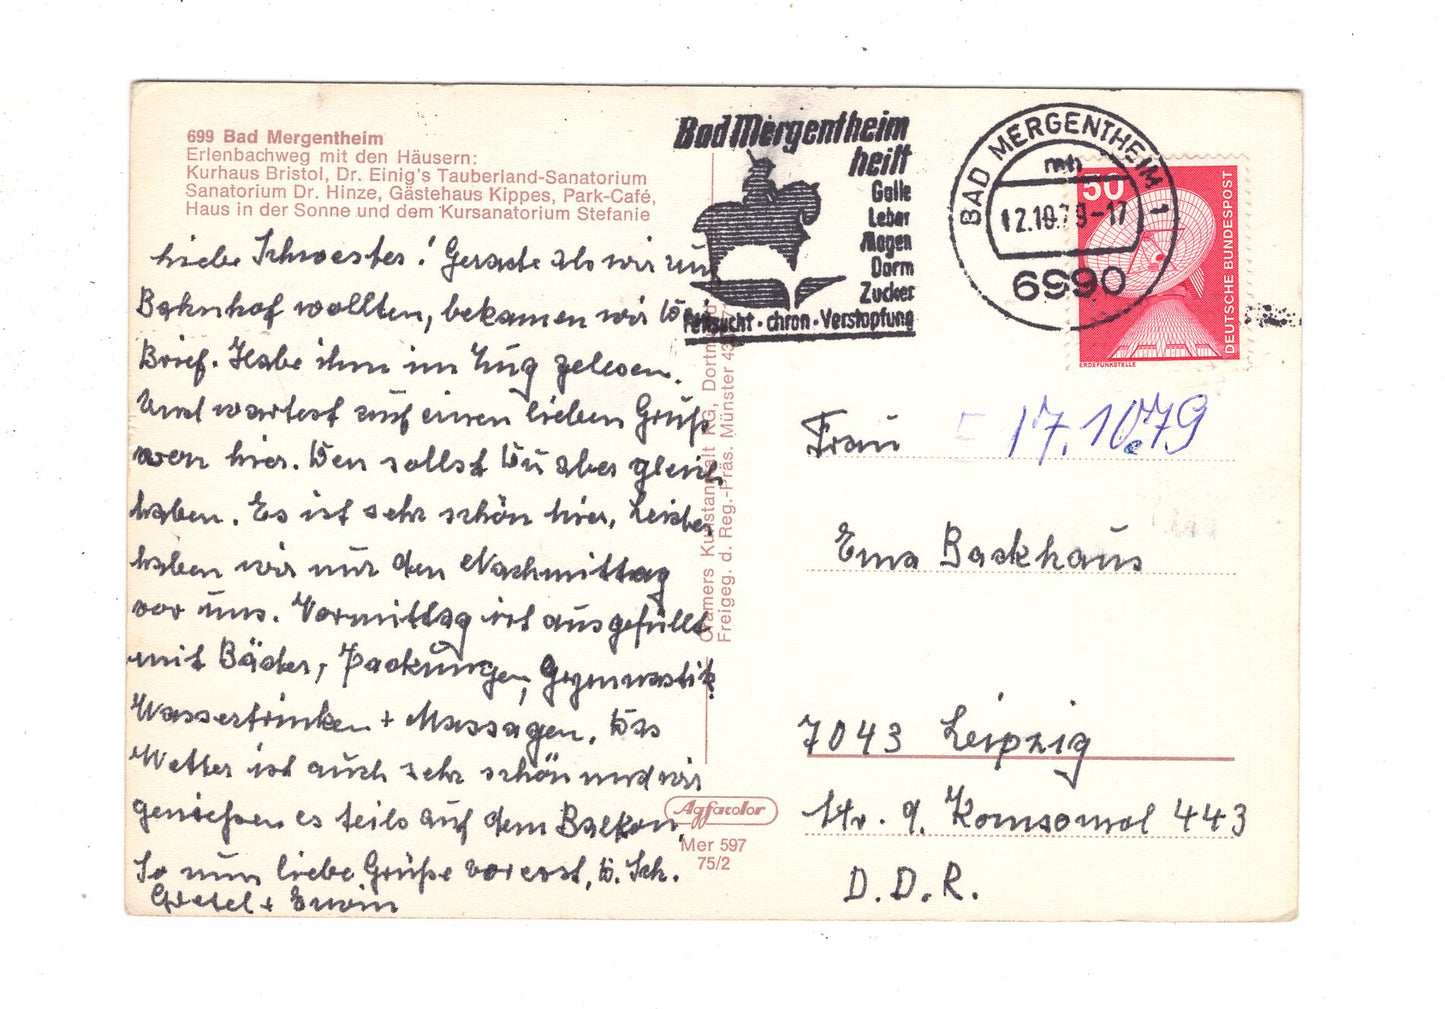 699 Bad Mergentheim
Erlenbachweg mit den Häusern:
Kurhaus Bristol, Dr. Einig's Tauberland-Sanatorium
Sanatorium Dr. Hinze, Gästehaus Kippes, Park-Café,
Haus in der Sonne und dem Kursanatorium Stefanie
Liebe Schwester! Gerade als wir zum
Bahnhof wollten, bekamen wir Dein
Brief. Habe ihn im Zug gelesen.
Und wartest auf einen lieben Gruß
von hier. Den sollst Du aber gleich
haben. Es ist sehr schön hier. Leider
haben wir nur den Nachmittag
vor uns. Vormittag ist ausgefüllt
mit Bäder, Packungen, Gymnastik
Wassertrinken + Massagen. Das
Wetter ist auch sehr schön und wir
genießen es teils auf dem Balkon.
So nun liebe Grüße vorerst, D. Sch.
Gretel + Erwin
Bad Mergentheim
heilt
Galle
Leber
Magen
Darm
Zucker
Fettsucht · chron · Verstopfung
BAD MERGENTHEIM 1
mn
12.10.79-17
6990
50
DEUTSCHE BUNDESPOST
ERDEFUNKSTELLE
Cramers Kunstanstalt KG, Dortmund
Freigeg. d. Reg.-Präs. Münster
Agfacolor
Mer 597
75/2
Frau
17.10.79
Erna Backhaus
7043 Leipzig
Str. d. Komsomol 443
D.D.R.